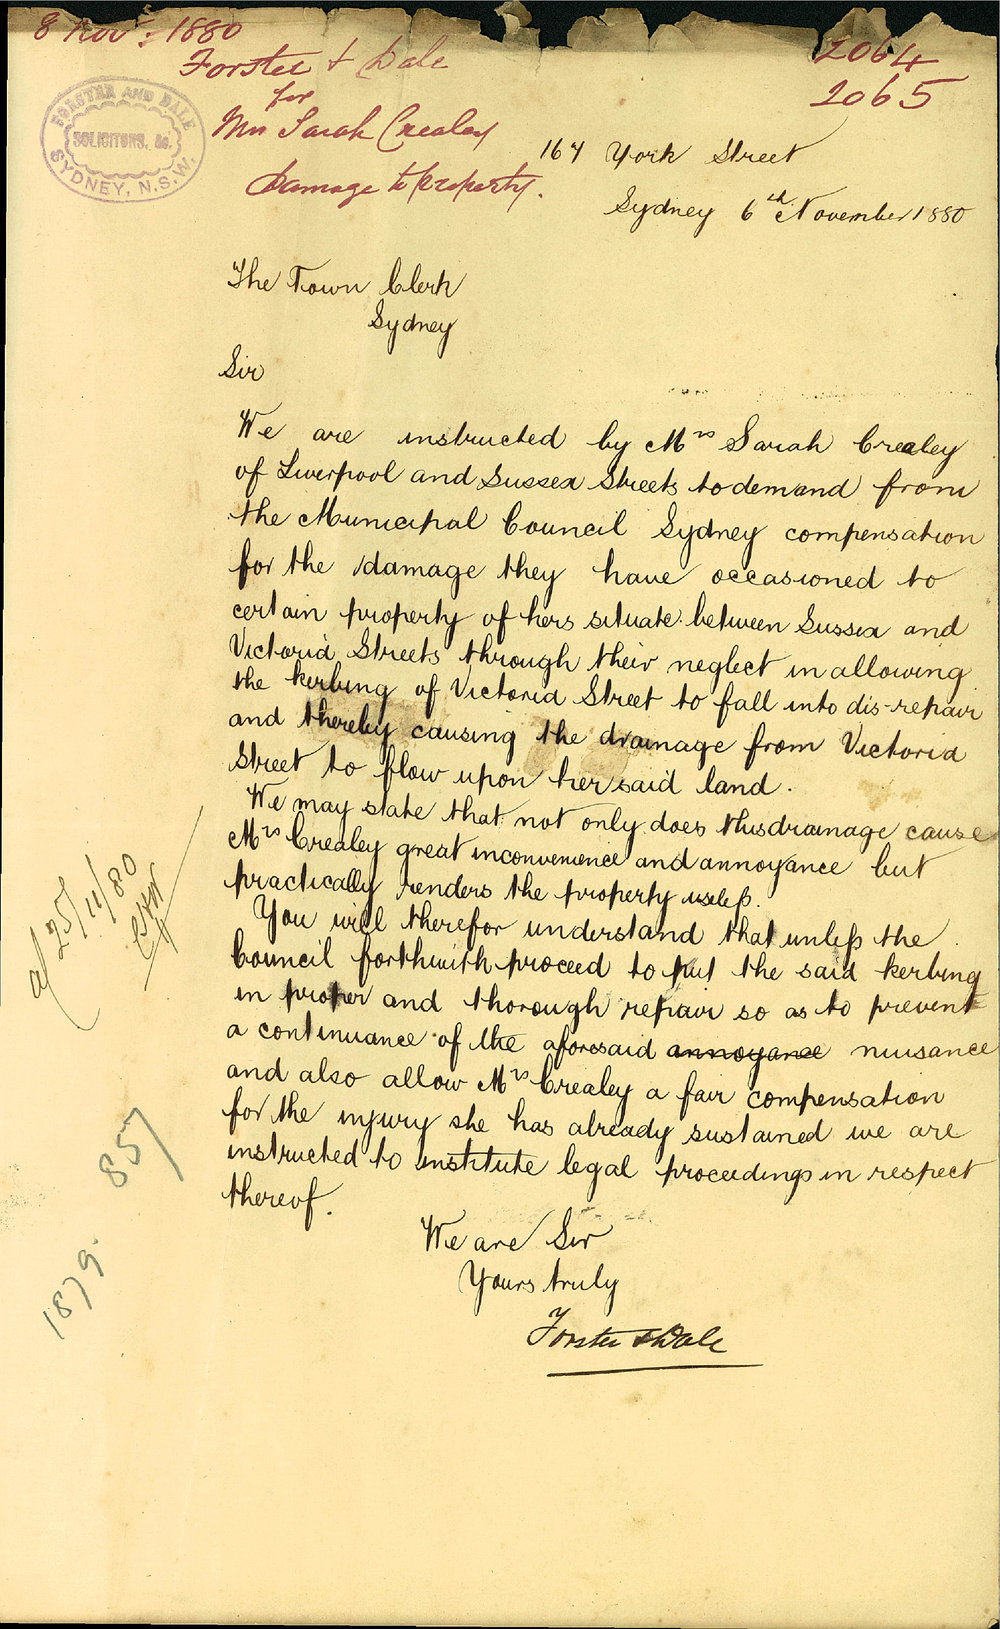 8 Nov: 1880
Forster & Dale
for
Mrs Sarah Crealey
Damage to property.
2064
2065
FORSTER AND DALE
SOLICITORS, &c.
SYDNEY, N.S.W.
167 York Street
Sydney 6th November 1880
The Town Clerk
Sydney
Sir
We are instructed by Mrs Sarah Crealey
of Liverpool and Sussex Streets to demand from
the Municipal Council Sydney compensation
for the damage they have occasioned to
certain property of hers situate between Sussex and
Victoria Streets through their neglect in allowing
the kerbing of Victoria Street to fall into dis-repair
and thereby causing the drainage from Victoria
Street to flow upon her said land.
We may state that not only does this drainage cause
Mrs Crealey great inconvenience and annoyance but
practically renders the property useless.
You will therefor understand that unless the
Council forthwith proceed to put the said kerbing
in proper and thorough repair so as to prevent
a continuance of the aforesaid annoyance nuisance
and also allow Mrs Crealey a fair compensation
for the injury she has already sustained we are
instructed to institute legal proceedings in respect
thereof.
We are Sir
Yours truly
Forster & Dale
25/11/80
857
1879.